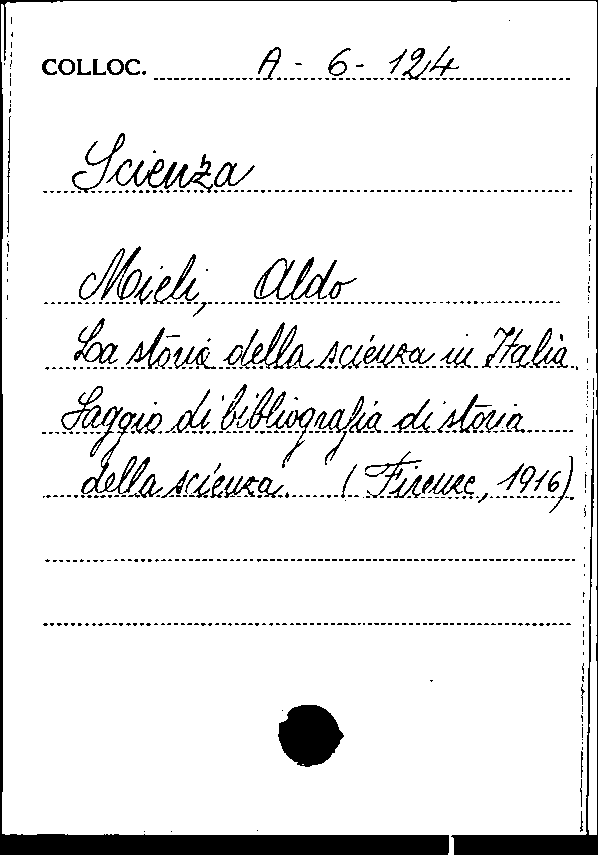 COLLOC. A - 6 - 124
Scienza
Mieli, Aldo
La storia della scienza in Italia.
Saggio di bibliografia di storia
della scienza. (Firenze, 1916)